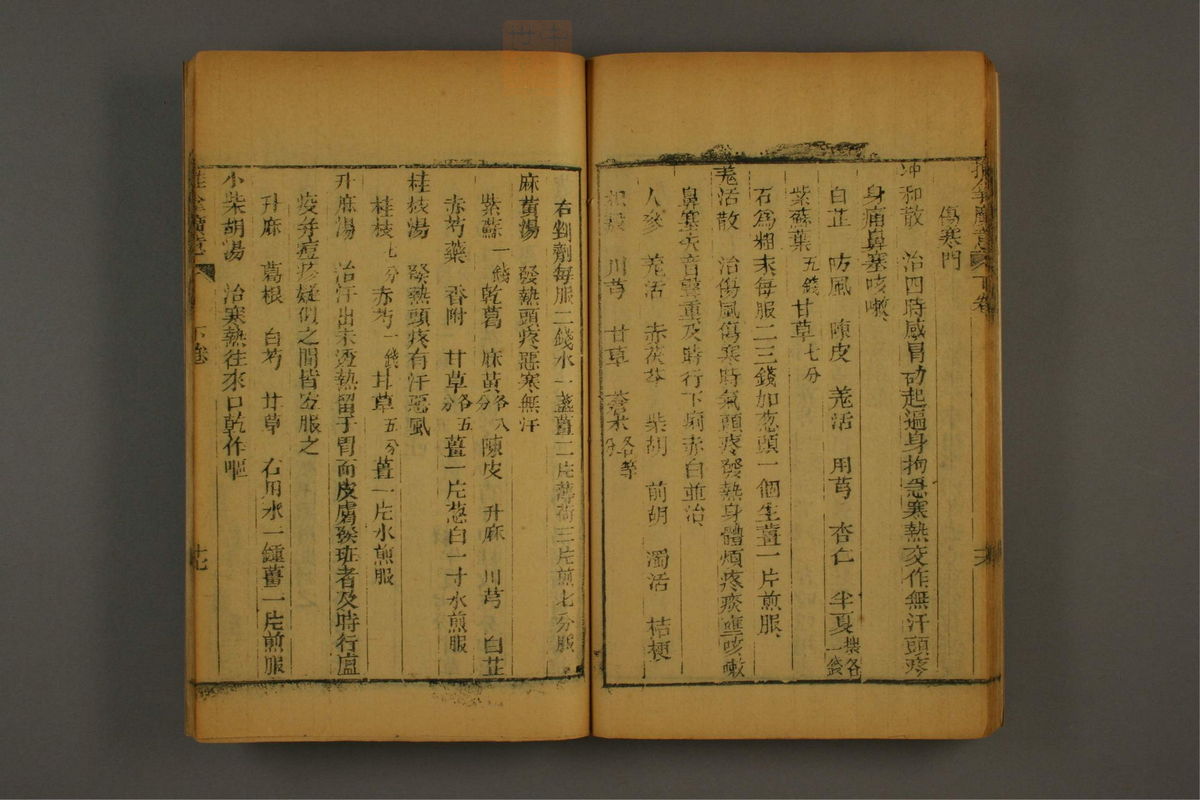 傷寒門
冲和散 治四時感冒初起遍身拘急寒熱交作無汗頭疼
身痛鼻塞咳嗽
白芷 防風 陳皮 羗活 川芎 杏仁 半夏
各一錢
紫蘇葉五錢甘草七分
石為粗末每服二三錢加葱頭一個生薑一片煎服
羗活散 治傷風傷寒時氣頭疼發熱身體煩疼痰壅咳嗽
鼻塞失音聲重及時行下痢赤白並治
人參 羗活 赤茯苓 柴胡 前胡 濁活 桔梗
枳殼 川芎 甘草 蒼术各等分
右剉劑每服二錢水一盞薑二片薄荷三片煎七分服
麻黄湯 發熱頭疼惡寒無汗
紫蘇一錢乾葛 麻黄各八分陳皮 升麻 川芎 白芷
赤芍藥 香附 甘草各五分薑一片葱白一寸水煎服
桂枝湯 發熱頭疼有汗惡風
桂枝七分赤芍一錢甘草五分薑一片水煎服
升麻湯 治汗出未透熱留于胃而皮膚發班者及時行瘟
疫并痘疹疑似之間皆宜服之
升麻 葛根 白芍 甘草 右用水一鍾薑一片煎服
小柴胡湯 治寒熱往來口乾作嘔
下卷
十七